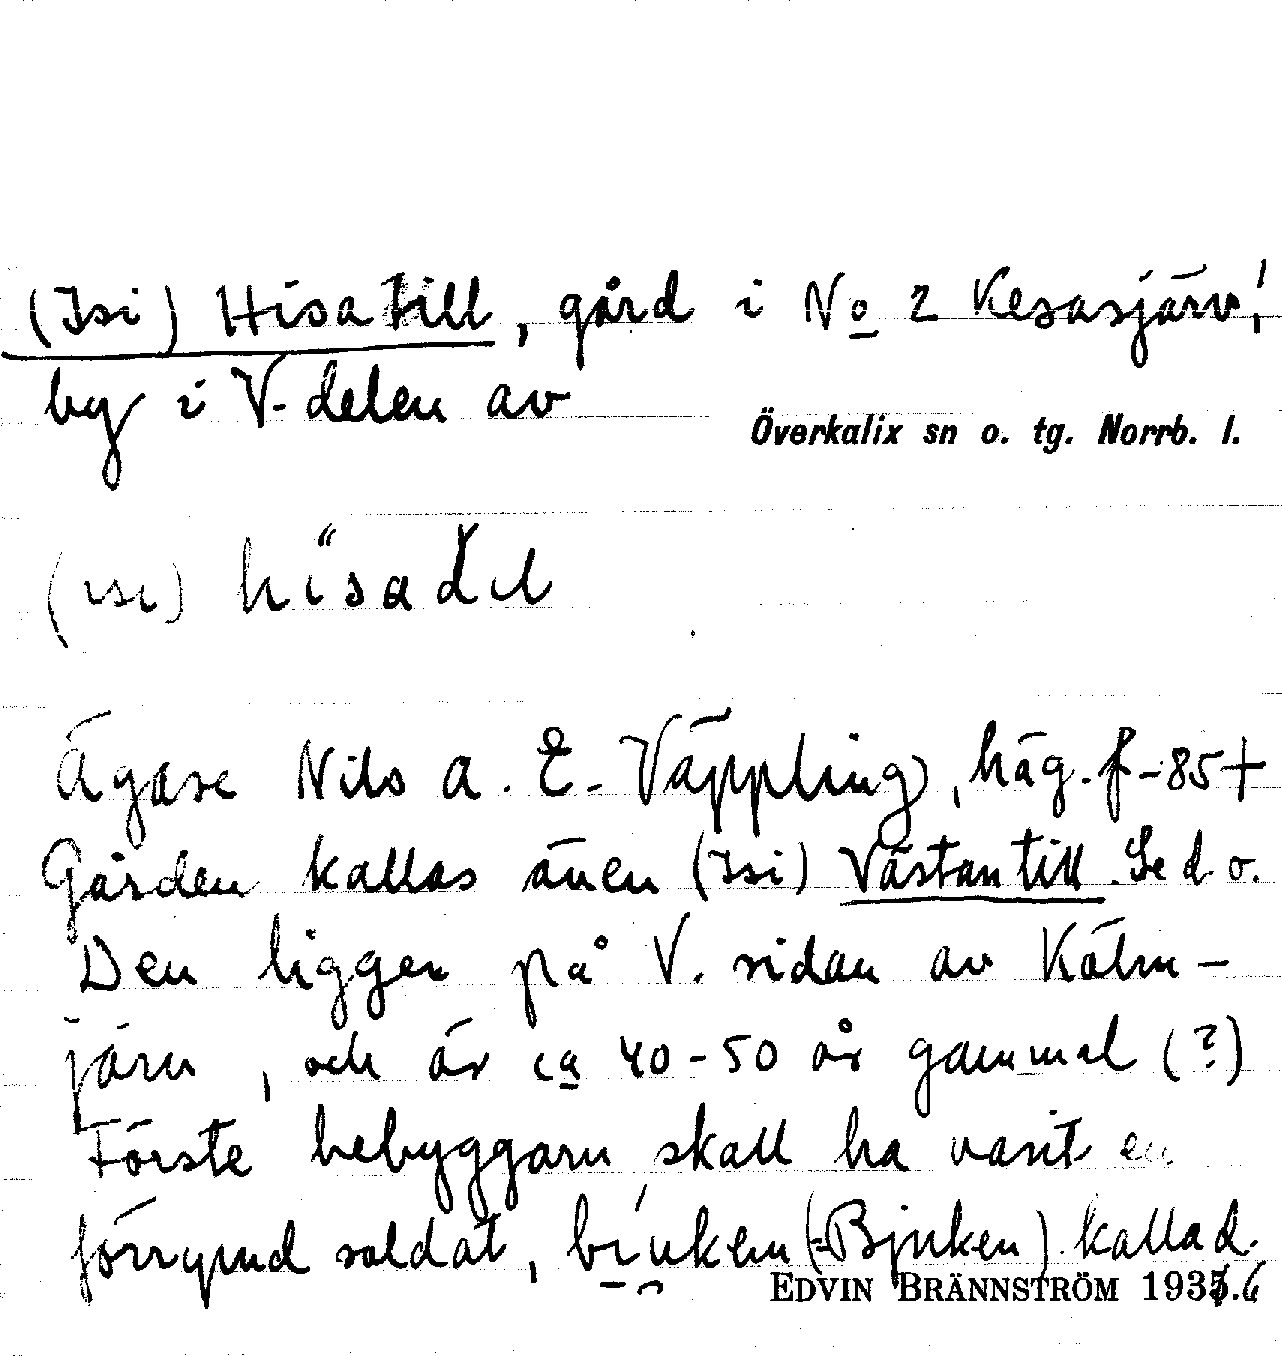 (Isi) Hisatill, gård i No 2 Kesasjärv,
by i V-delen av
Överkalix sn o. tg. Norrb. l.
(isi)
Ägare Nils A. E. Väppling, häg. f-85+
Gården kallas även (Isi) Västantill. Se d. o.
Den ligger på V. sidan av Kälm-
järn, och är ca 40-50 år gammal (?)
Förste bebyggarn skall ha varit en
förrymd soldat, (=Bjuken) kallad.
EDVIN BRÄNNSTRÖM 193